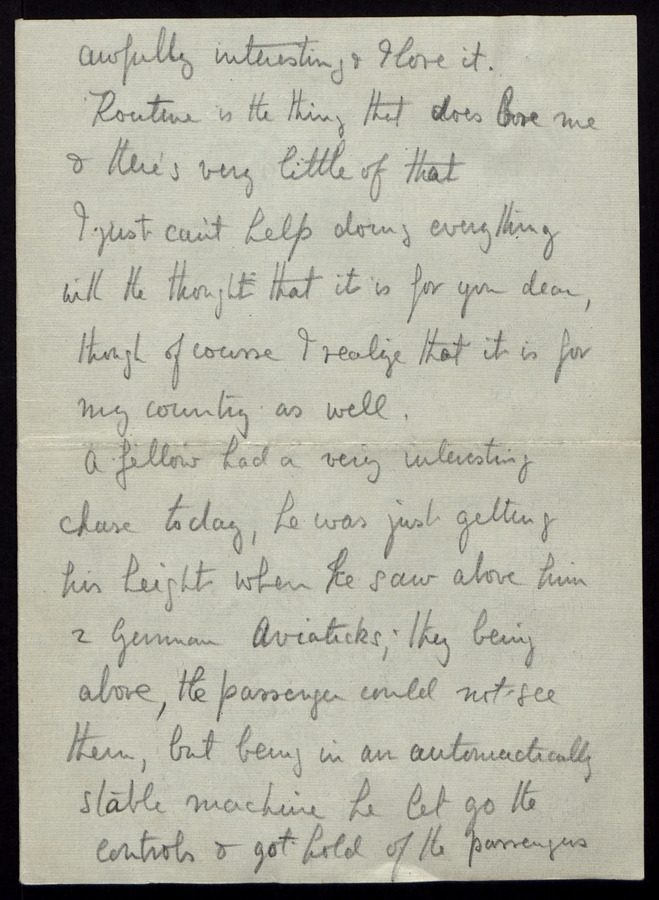 awfully interesting & I love it.
Routine is the thing that does bore me
& there's very little of that
I just can't help doing everything
with the thought that it is for you dear,
though of course I realize that it is for
my country as well.
A fellow had a very interesting
chase today, he was just getting
his height when he saw above him
2 German Aviaticks; they being
above, the passenger could not see
them, but being in an automactically
stable machine he let go the
controls & got hold of the passengers